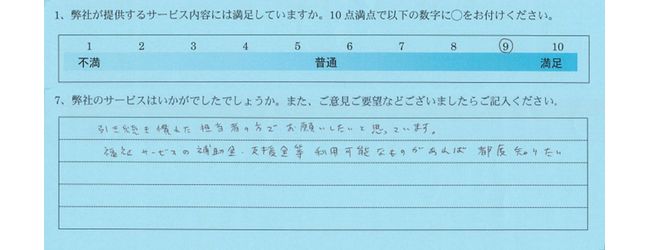 1、弊社が提供するサービス内容には満足していますか。10点満点で以下の数字に○をお付けください。
1 2 3 4 5 6 7 8 9 10
不満 普通 満足
7、弊社のサービスはいかがでしたでしょうか。また、ご意見ご要望などございましたらご記入ください。
引き続き慣れた担当者の方でお願いしたいと思っています。
福祉サービスの補助金・支援金等利用可能なものがあれば都度知りたい